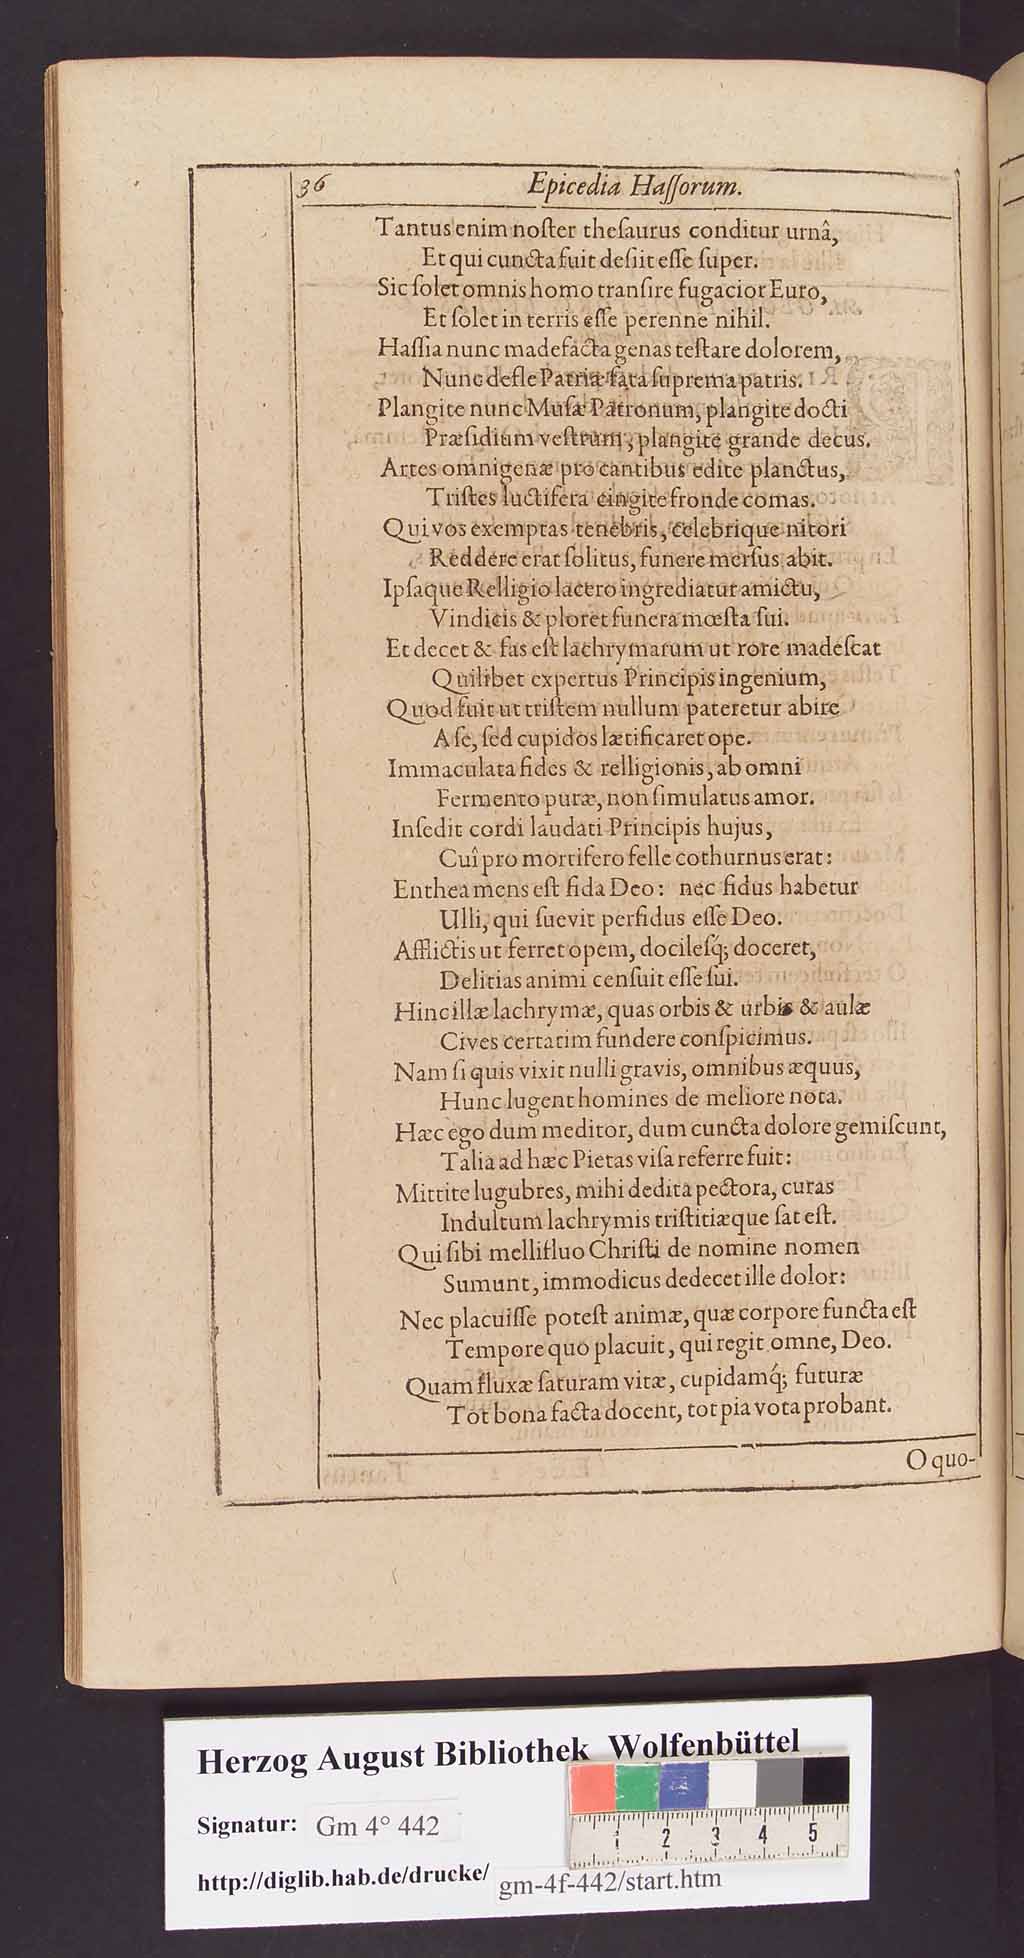 36 Epicedia Haſſorum.
Tantus enim noſter theſaurus conditur urnâ,
Et qui cuncta fuit deſiit eſſe ſuper.
Sic ſolet omnis homo tranſire fugacior Euro,
Et ſolet in terris eſſe perenne nihil.
Haſſia nunc madefacta genas teſtare dolorem,
Nunc defle Patriæ fata ſuprema patris.
Plangite nunc Muſæ Patronum, plangite docti
Præſidium veſtrum, plangite grande decus.
Artes omnigenæ pro cantibus edite planctus,
Triſtes luctifera cingite fronde comas.
Qui vos exemptas tenebris, celebrique nitori
Reddere erat ſolitus, funere merſus abit.
Ipſaque Relligio lacero ingrediatur amictu,
Vindicis & ploret funera mœſta ſui.
Et decet & fas eſt lachrymarum ut rore madeſcat
Quilibet expertus Principis ingenium,
Quod fuit ut triſtem nullum pateretur abire
A ſe, ſed cupidos lætificaret ope.
Immaculata fides & relligionis, ab omni
Fermento puræ, non ſimulatus amor.
Inſedit cordi laudati Principis hujus,
Cuî pro mortifero felle cothurnus erat:
Enthea mens eſt fida Deo: nec fidus habetur
Ulli, qui ſuevit perfidus eſſe Deo.
Afflictis ut ferret opem, docileſq́; doceret,
Delitias animi cenſuit eſſe ſui.
Hinc illæ lachrymæ, quas orbis & urbis & aulæ
Cives certatim fundere conſpicimus.
Nam ſi quis vixit nulli gravis, omnibus æquus,
Hunc lugent homines de meliore nota.
Hæc ego dum meditor, dum cuncta dolore gemiſcunt,
Talia ad hæc Pietas viſa referre fuit:
Mittite lugubres, mihi dedita pectora, curas
Indultum lachrymis triſtitiæque ſat eſt.
Qui ſibi mellifluo Chriſti de nomine nomen
Sumunt, immodicus dedecet ille dolor:
Nec placuiſſe poteſt animæ, quæ corpore functa eſt
Tempore quo placuit, qui regit omne, Deo.
Quam fluxæ ſaturam vitæ, cupidamq́; futuræ
Tot bona facta docent, tot pia vota probant.
O quo-
Herzog August Bibliothek Wolfenbüttel
Signatur: Gm 4° 442
1 2 3 4 5
http://diglib.hab.de/drucke/ gm-4f-442/start.htm